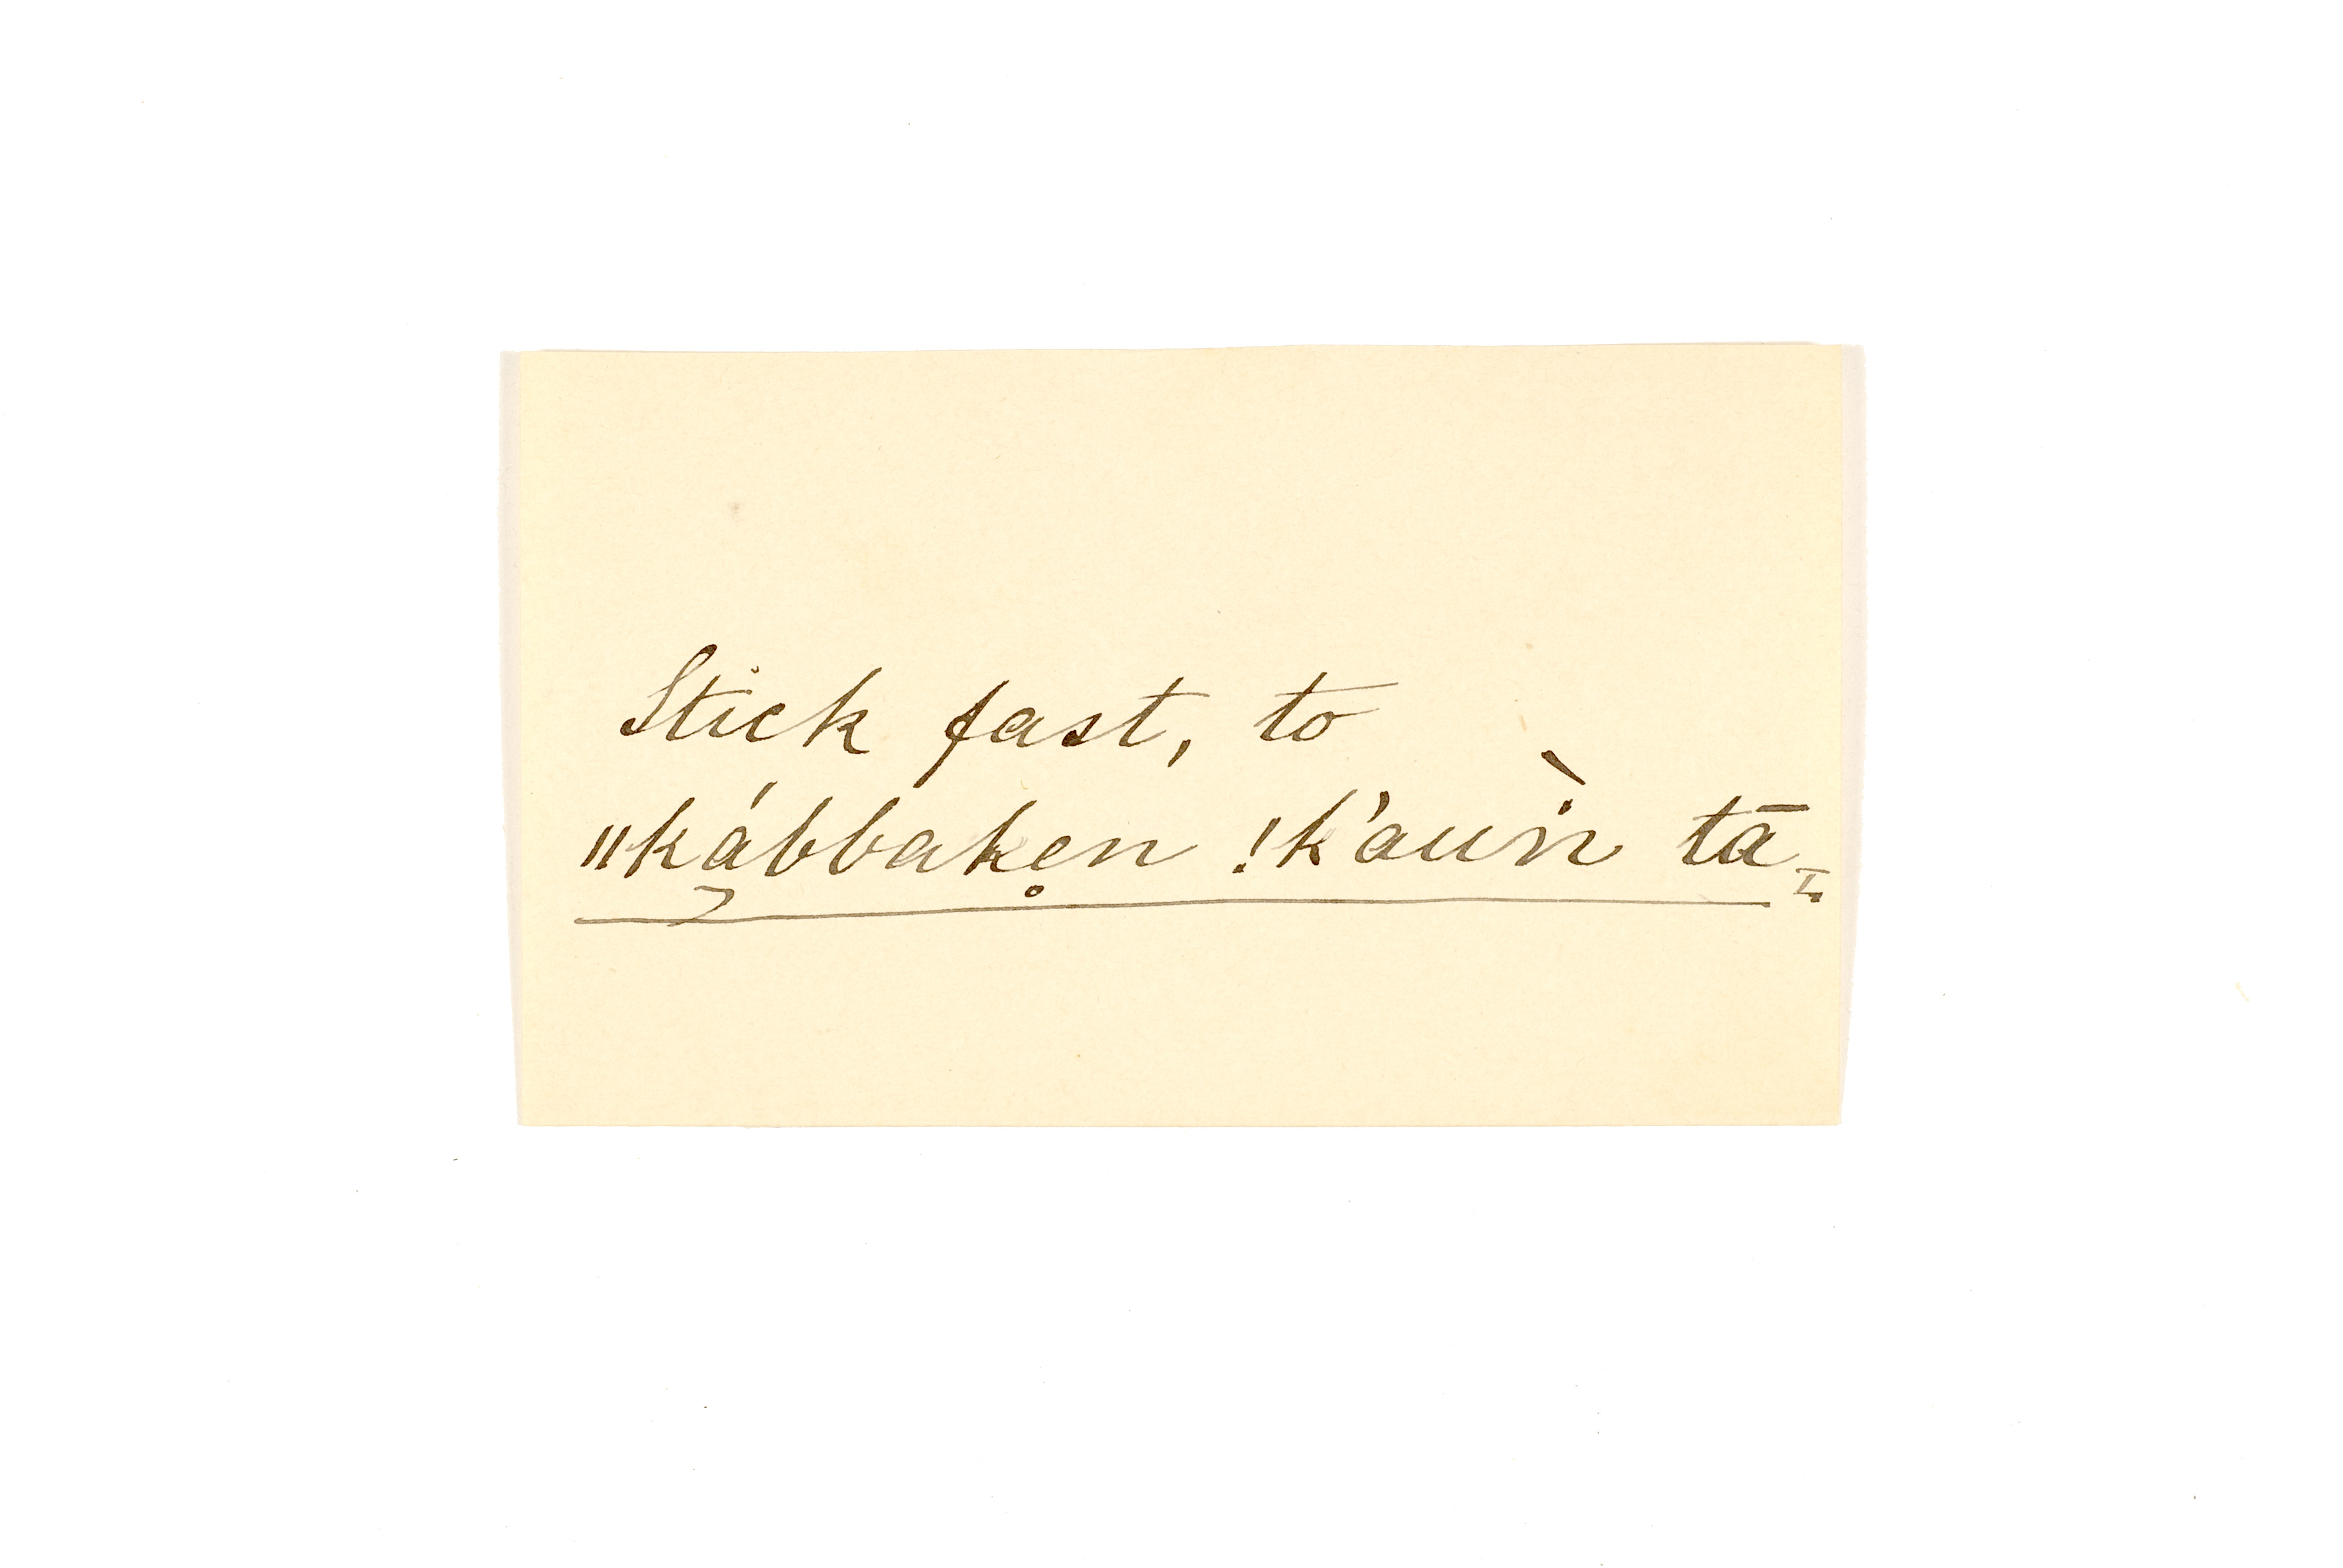 Stick fast, to
ǁkábbaken̥ !k'auṅ̀ tā